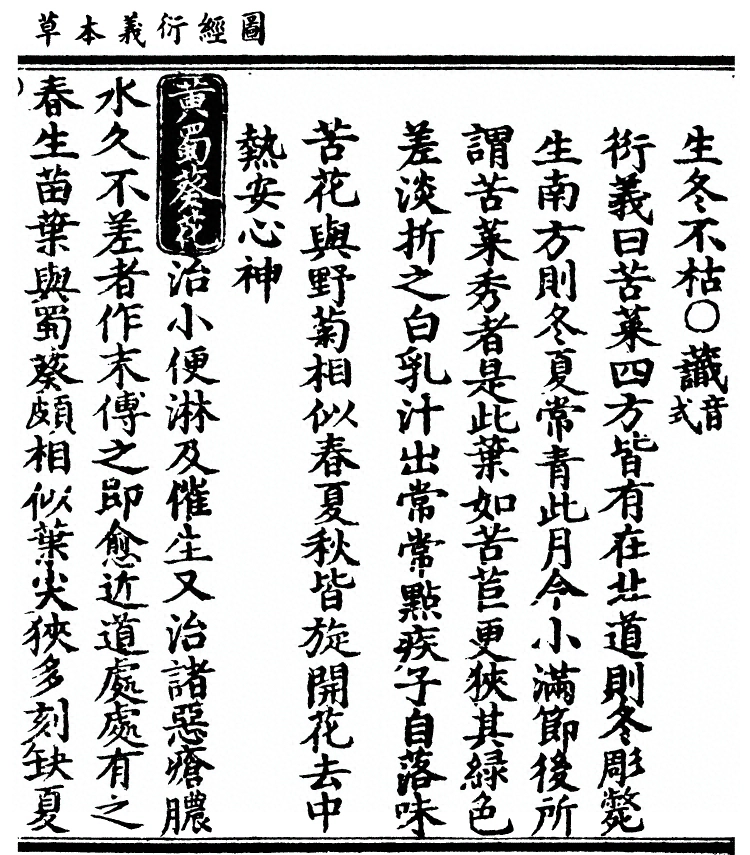 圖經衍義本草
生冬不枯○蘵音式
衍義曰苦菜四方皆有在北道則冬彫斃
生南方則冬夏常青此月令小滿節後所
謂苦菜秀者是此葉如苦苣更狹其綠色
差淡折之白乳汁出常常點疾子自落味
苦花與野菊相似春夏秋皆旋開花去中
熱安心神
黃蜀葵花治小便淋及催生又治諸惡瘡膿
水久不差者作末傅之卽愈近道處處有之
春生苗葉與蜀葵頗相似葉尖狹多刻缺夏